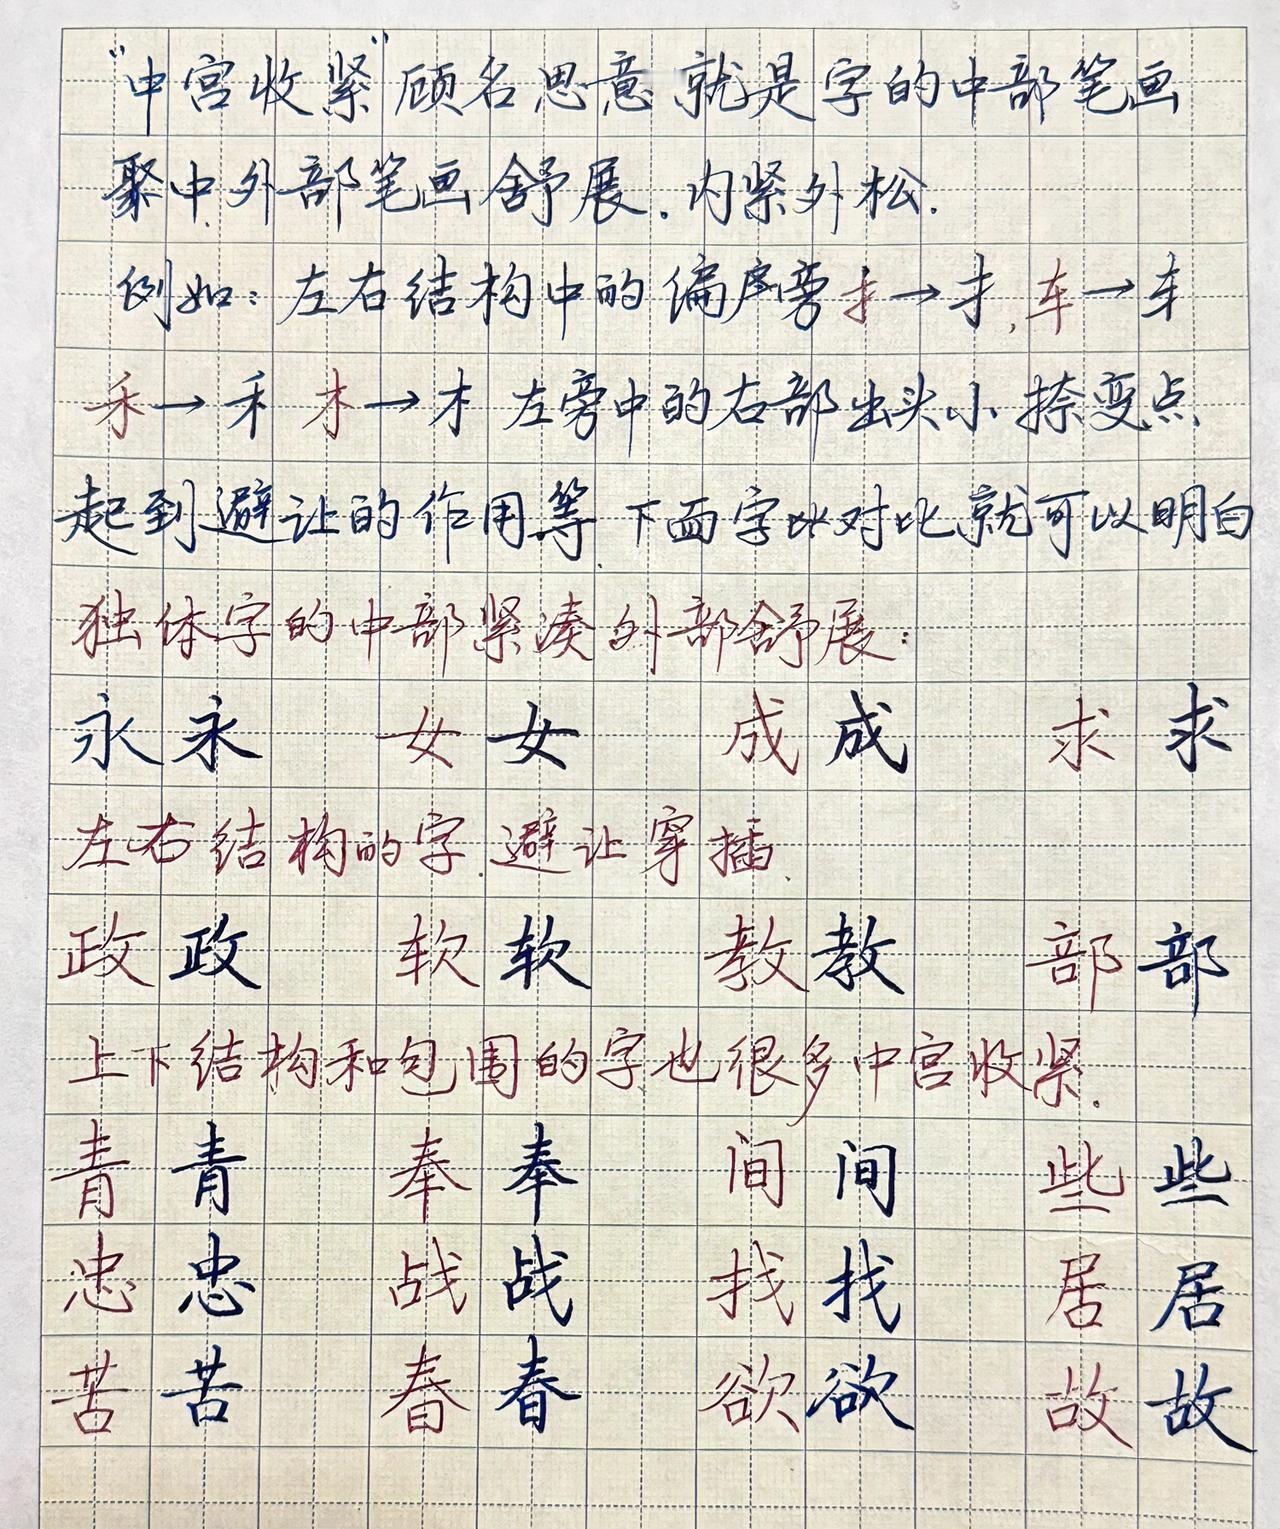 “中宫收紧”顾名思意就是字的中部笔画
聚中.外部笔画舒展.内紧外松.
例如:左右结构中的偏序旁扌→才,车→车
禾→禾 木→木 左旁中的右部出头小捺变点
起到避让的作用等.下面字比对比就可以明白
独体字的中部紧凑外部舒展:
永永 女女 成成 求求
左右结构的字.避让穿插.
政政 软软 教教 部部
上下结构和包围的字也很多中宫收紧.
青青 奉奉 间间 些些
忠忠 战战 找找 居居
苦苦 春春 欲欲 故故